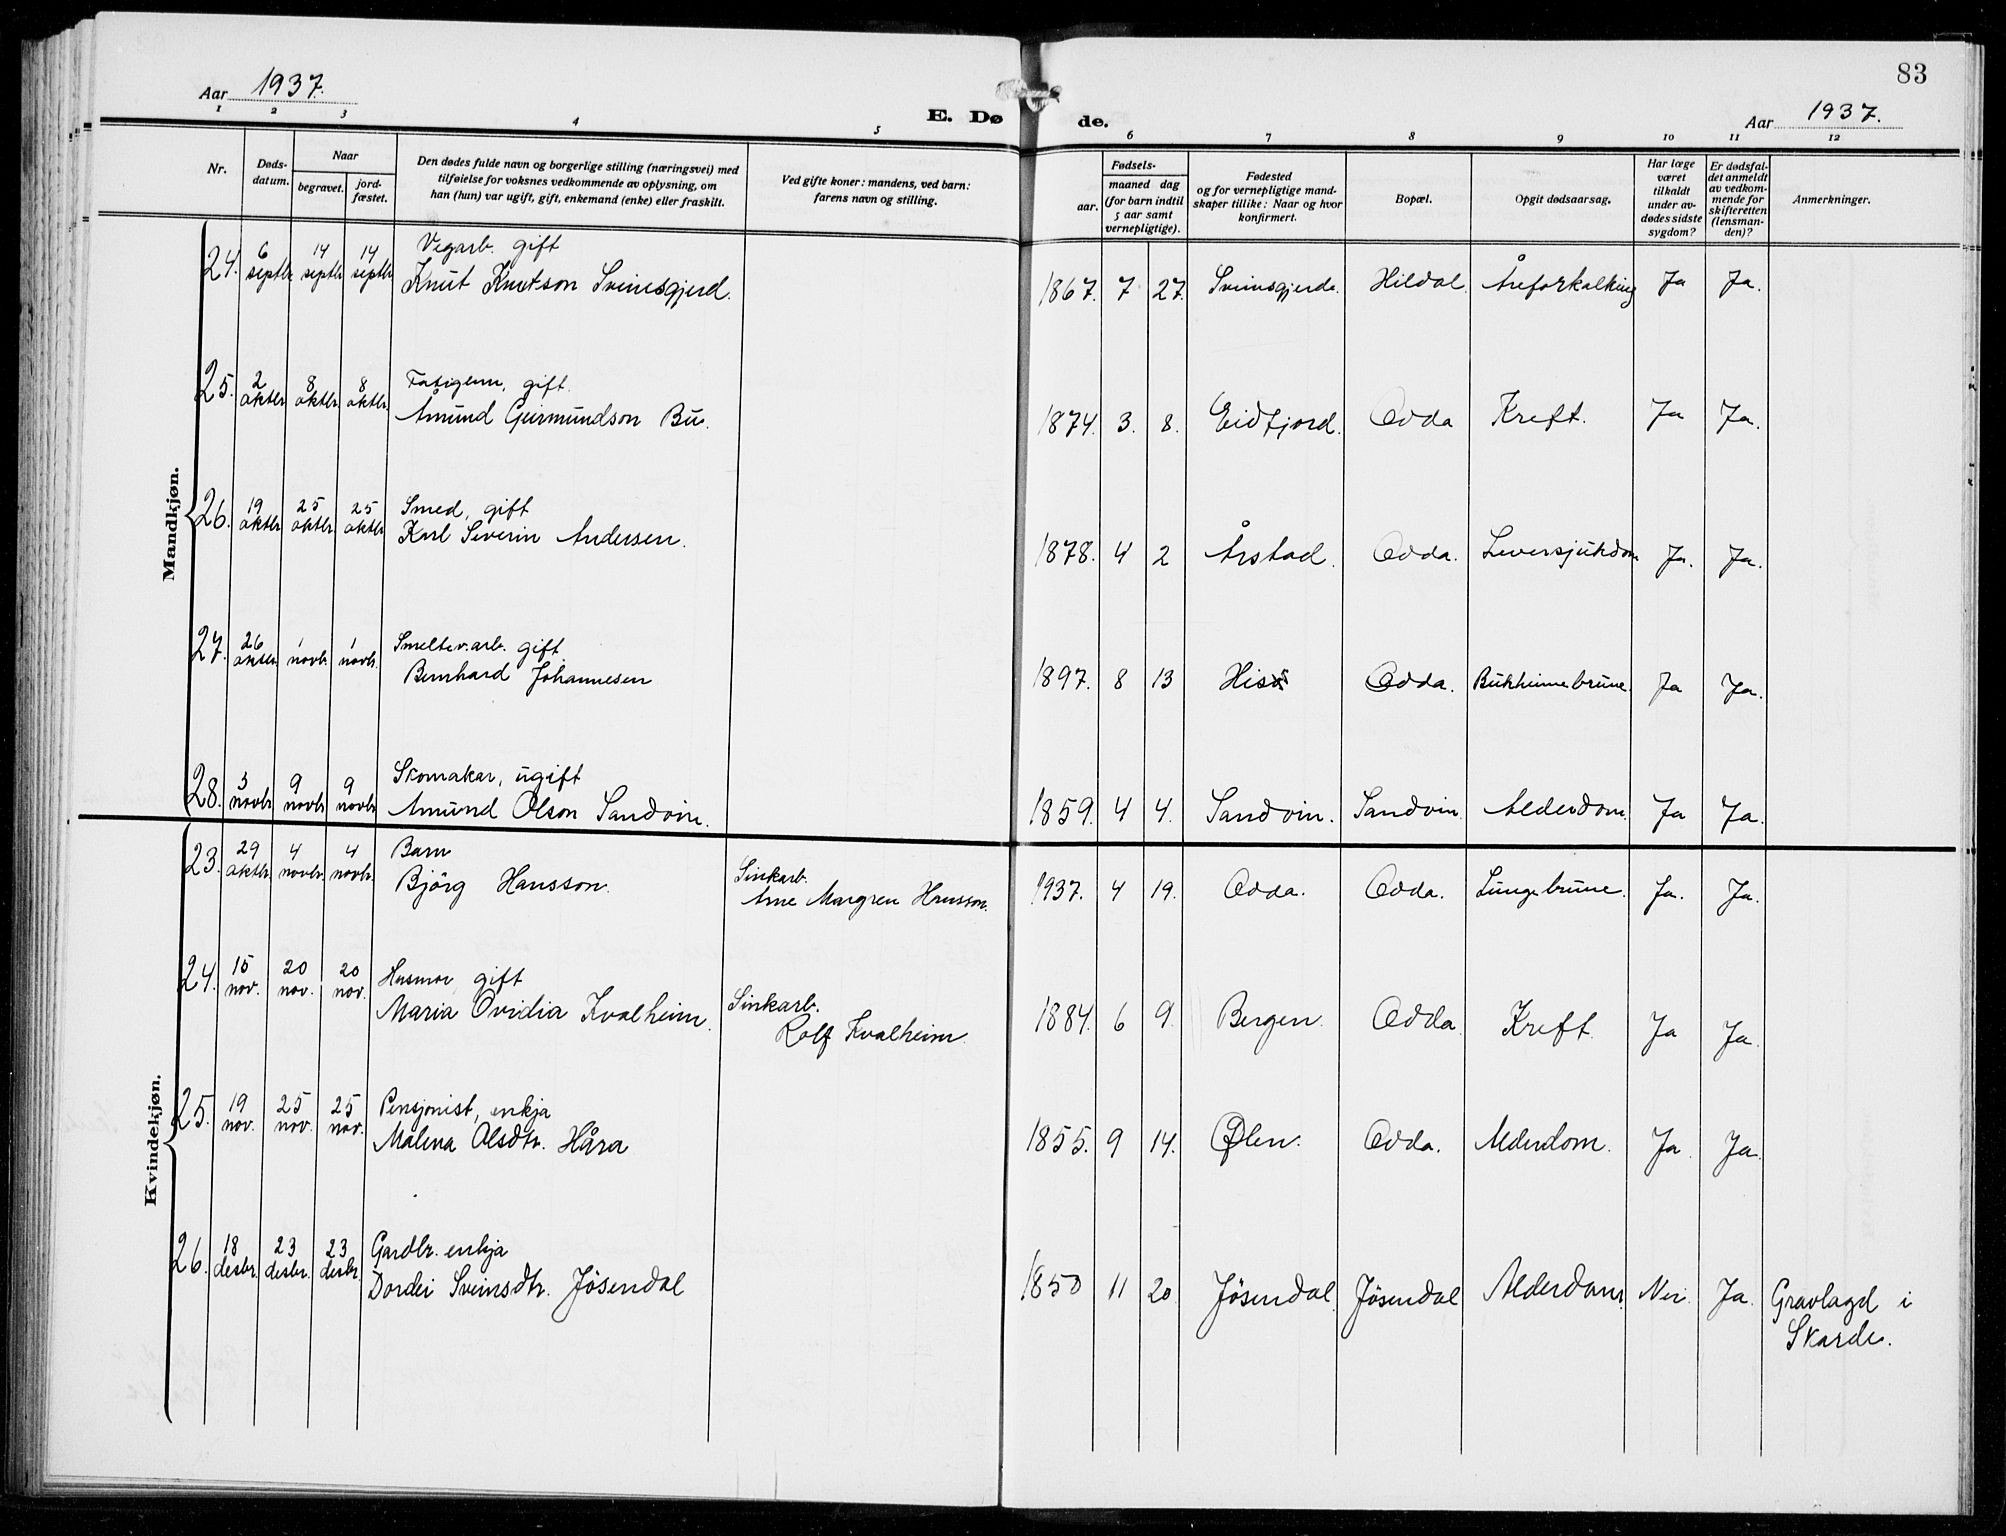 83
Aar 1937.
E. Dø
de.
Aar 1937.
1 2 3 4 5 6 7 8 9 10 11 12
Nr.
Døds-
datum.
Naar
begravet.
jord-
fæstet.
Den dødes fulde navn og borgerlige stilling (næringsvei) med
tilføielse for voksnes vedkommende av oplysning, om
han (hun) var ugift, gift, enkemand (enke) eller fraskilt.
Ved gifte koner: mandens, ved barn:
farens navn og stilling.
Fødsels-
aar.
maaned dag
(for barn indtil
5 aar samt
vernepligtige).
Fødested
og for vernepligtige mand-
skaper tillike: Naar og hvor
konfirmert.
Bopæl.
Opgit dødsaarsag.
Har læge
været
tilkaldt
under av-
dødes sidste
sygdom?
Er dødsfal-
det anmeldt
av vedkom-
mende for
skifteretten
(lensman-
den)?
Anmerkninger.
Mandkjøn.
24. 6 septbr 14 septbr 14 septbr Vegarb. gift
Knut Knutson Sveinsgjerd. 1867. 7 27. Sveinsgjerde. Hildal. Åreforkalking Ja Ja.
25. 2 oktbr. 8 oktbr. 8 oktbr. gift.
Åmund Geirmundson Bu. 1874. 3. 8. Eidfjord. Odda Kreft. Ja Ja.
26. 19 oktbr 25 oktbr 25 oktbr Smed, gift
Karl Severin Andersen. 1878. 4 2 Årstad. Odda. Leversjukdom Ja. Ja.
27. 26 oktbr 1 novb. 1 novb. Smeltev.arb. gift
Bernhard Johannesen 1897. 8 13 Odda. Bukhinnebrune. Ja Ja.
28. 3 novbr 9 novbr 9 novbr Skomakar, ugift
Åmund Olson Sandvin. 1859. 4 4. Sandvin. Sandvin Alderdom. Ja Ja.
Kvindekjøn.
23. 29 oktbr. 4 novbr. 4 novbr. Barn
Björg Hansson. Sinkarb.
Arne Margren Hansson. 1937. 4 19. Odda. Odda. Lungebrune. Ja. Ja.
24. 15 nov. 20 nov. 20 nov. Husmor, gift
Maria Ovidia Kvalheim. Sinkarb.
Rolf Kvalheim. 1884. 6 9. Bergen. Odda Kreft. Ja Ja.
25. 19 nov. 25 nov. 25 nov. Pensjonist, enkja
Malena Olsdtr. Håra 1855. 9 14. Ølen. Odda. Alderdom. Ja. Ja.
26. 18 desbr. 23 desbr. 23 desbr. Gardbr. enkja
Dordei Sveinsdtr. Jøsendal 1850 11 20. Jøsendal. Jøsendal Alderdom. Nei. Ja. Gravlagd i
Skarde.